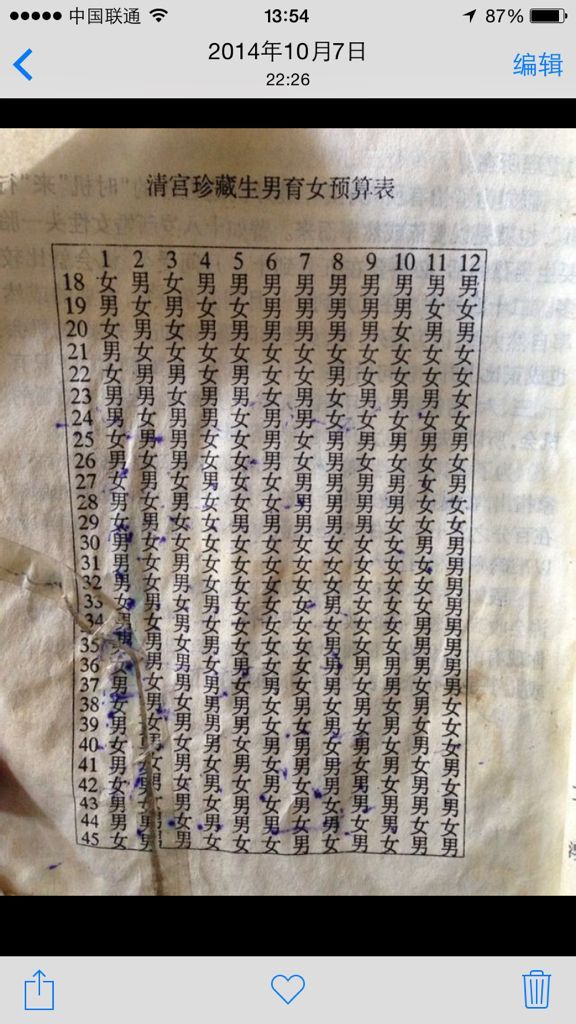 中国联通 13:54 87%
2014年10月7日
22:26
编辑
清宫珍藏生男育女预算表
1 2 3 4 5 6 7 8 9 10 11 12
18 女 男 女 男 男 男 男 男 男 男 男 男
19 男 女 男 女 女 男 男 男 男 男 女 女
20 女 男 女 男 男 男 男 男 男 女 男 男
21 男 女 女 女 女 女 女 女 女 女 女 女
22 女 男 男 女 男 女 女 男 女 女 女 女
23 男 男 女 男 男 女 男 女 男 男 男 女
24 男 女 男 男 女 男 男 女 女 女 女 女
25 女 男 女 女 女 男 女 男 男 男 男 男
26 男 女 男 女 女 男 女 男 女 女 女 女
27 女 男 女 男 女 女 男 男 男 男 女 男
28 男 女 男 女 女 女 男 男 男 男 女 女
29 女 男 女 女 男 男 男 男 男 女 女 女
30 男 女 女 女 女 女 女 女 女 女 男 男
31 男 女 男 女 女 女 女 女 女 女 女 男
32 男 女 男 女 女 女 女 女 女 女 女 男
33 女 男 女 男 女 女 女 男 女 女 女 男
34 男 女 男 女 女 女 女 女 女 女 男 男
35 男 男 女 男 女 女 女 男 女 女 男 男
36 女 男 男 女 男 女 女 女 男 男 男 男
37 男 女 男 男 女 男 女 男 女 男 女 男
38 女 男 女 男 男 女 男 女 男 女 男 女
39 男 女 男 男 男 女 女 男 女 男 女 女
40 女 男 女 男 女 男 男 女 男 女 男 女
41 男 女 男 女 男 女 男 男 女 男 女 男
42 女 男 女 男 女 男 女 男 男 女 男 女
43 男 女 男 女 男 女 男 女 男 男 男 男
44 男 男 女 男 男 男 女 男 女 男 女 女
45 女 男 男 女 女 女 男 女 男 女 男 男